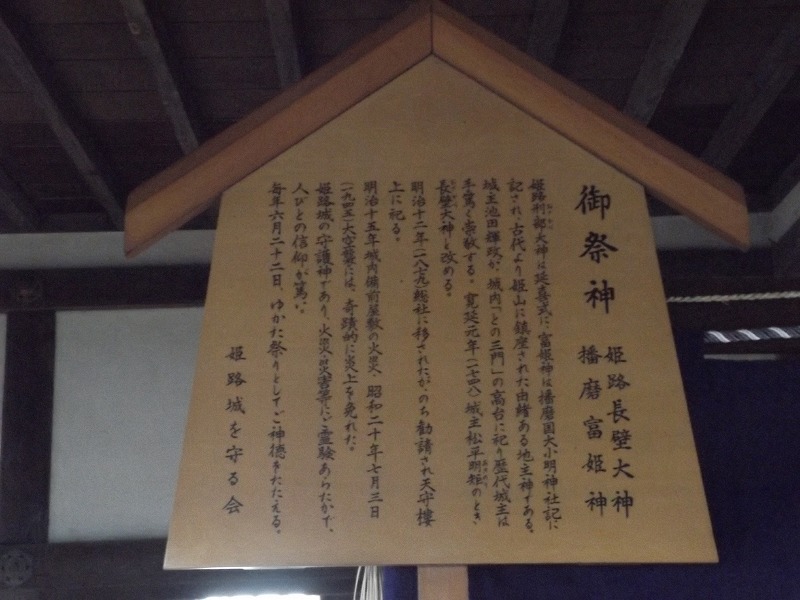 御祭神
姫路長壁大神
播磨富姫神
姫路刑部大神は延喜式に、富姫神は播磨国大小明神社記に
記され、古代より姫山に鎮座された由緒ある地主神である。
城主池田輝政が、城内「との三門」の高台に祀り歴代城主は
手篤く崇敬する。寛延元年(一七四八)城主松平明矩のとき
長壁大神と改める。
明治十二年(一八七九)総社に移されたが、のち勧請され天守樓
上に祀る。
明治十五年城内備前屋敷の火災、昭和二十年七月三日
(一九四五)大空襲には、奇蹟的に炎上を免れた。
姫路城の守護神であり、火災、災害等にご霊験あらたかで、
人びとの信仰が篤い。
毎年六月二十二日、ゆかた祭りとしてご神徳をたたえる。
姫路城を守る会